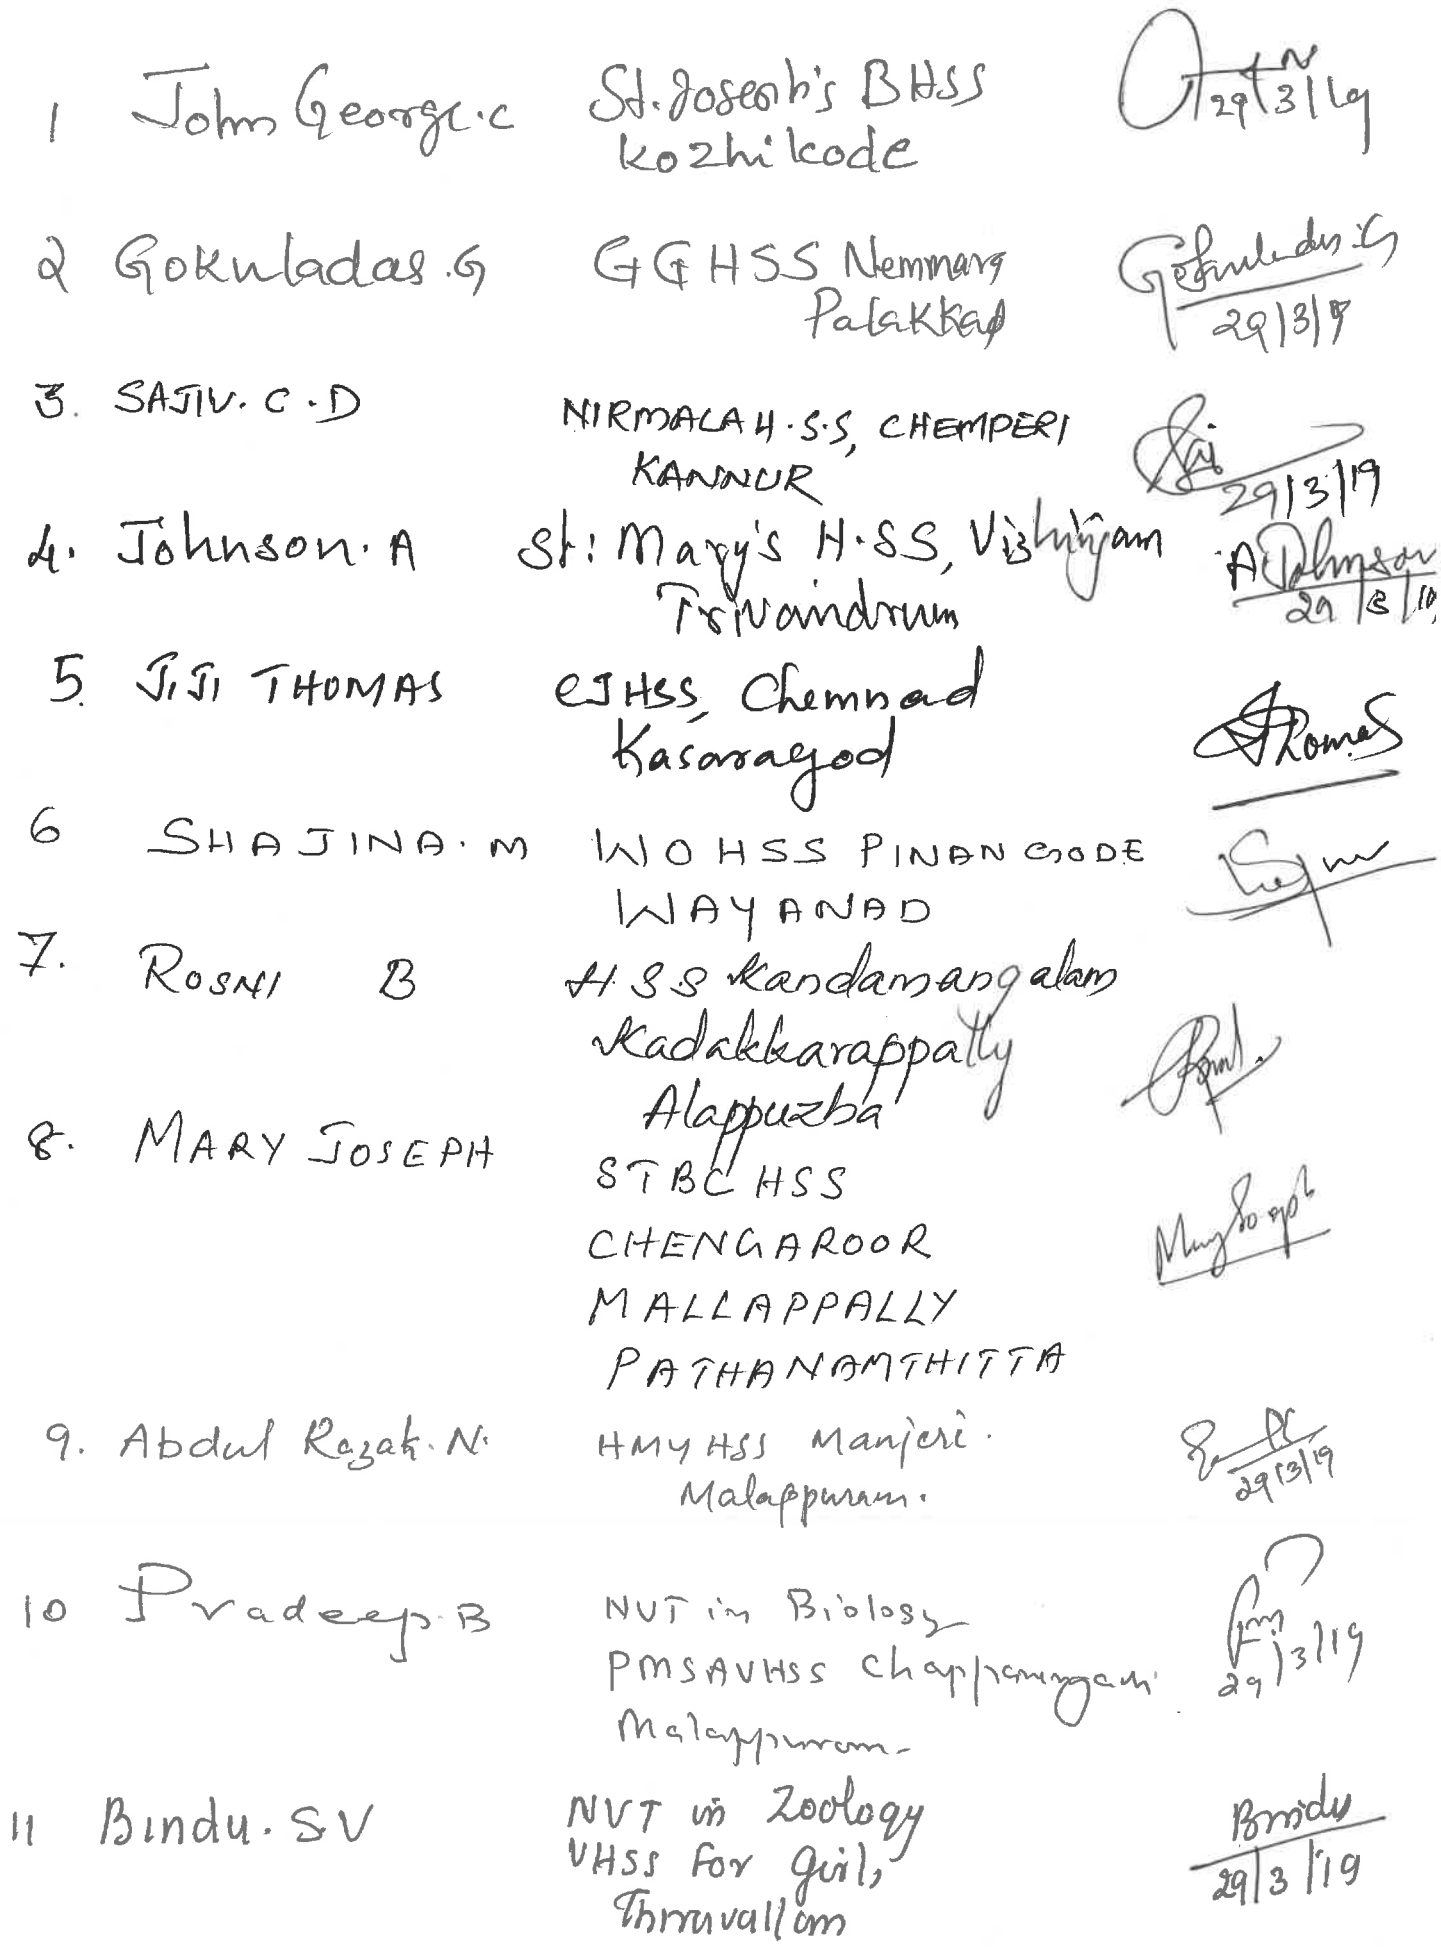 1 John George.C St. Joseph's BHSS
Kozhikode
29/3/19
2 Gokuladas.G GGHSS Nemmara Gokuladas.G
Palakkad 29/3/19
3. SAJIV. C.D NIRMALA H.S.S, CHEMPERI Saji
KANNUR 29/3/19
4. Johnson. A St: Mary's H.SS, Vizhinjam A Johnson
Trivandrum 29/3/19
5. JIJI THOMAS CJHSS, Chemnad Thomas
Kasaragod
6 SHAJINA. M WOHSS PINANGODE
WAYANAD
7. ROSNI B HSS Kandamangalam
Kadakkarappally
Alappuzha
8. MARY JOSEPH
STBC HSS
CHENGAROOR Mary Joseph
MALLAPPALLY
PATHANAMTHITTA
9. Abdul Razak. N. HMYHSS Manjeri.
Malappuram. 29/3/19
10 Pradeep. B NVT in Biology
PMSAVHSS Chappanangadi 29/3/19
Malappuram
11 Bindu. S V NVT in Zoology Bindu
VHSS for Girls, 29/3/19
Thiruvallam